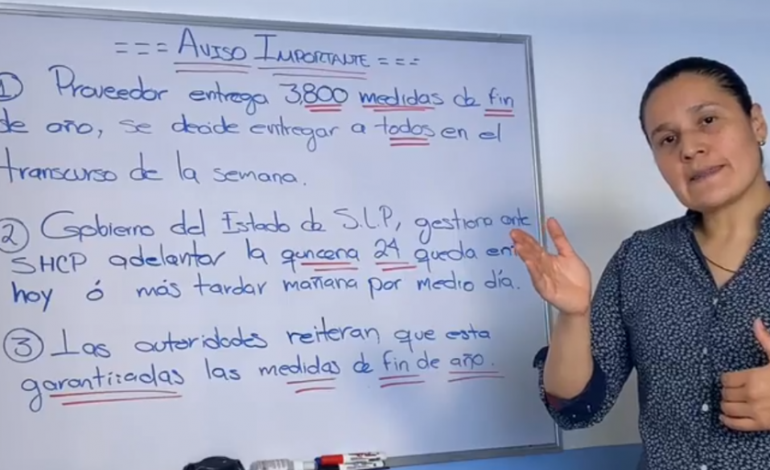 === AVISO IMPORTANTE ===
① Proveedor entrega 3,800 medidas de fin
de año, se decide entregar a todos en el
transcurso de la semana.
② Gobierno del Estado de S.L.P, gestiona ante
SHCP adelantar la quncena 24 queda en
hoy ó más tardar mañana por medio día.
③ Las autoridades reiteran que esta
garantizadas las medidas de fin de año.